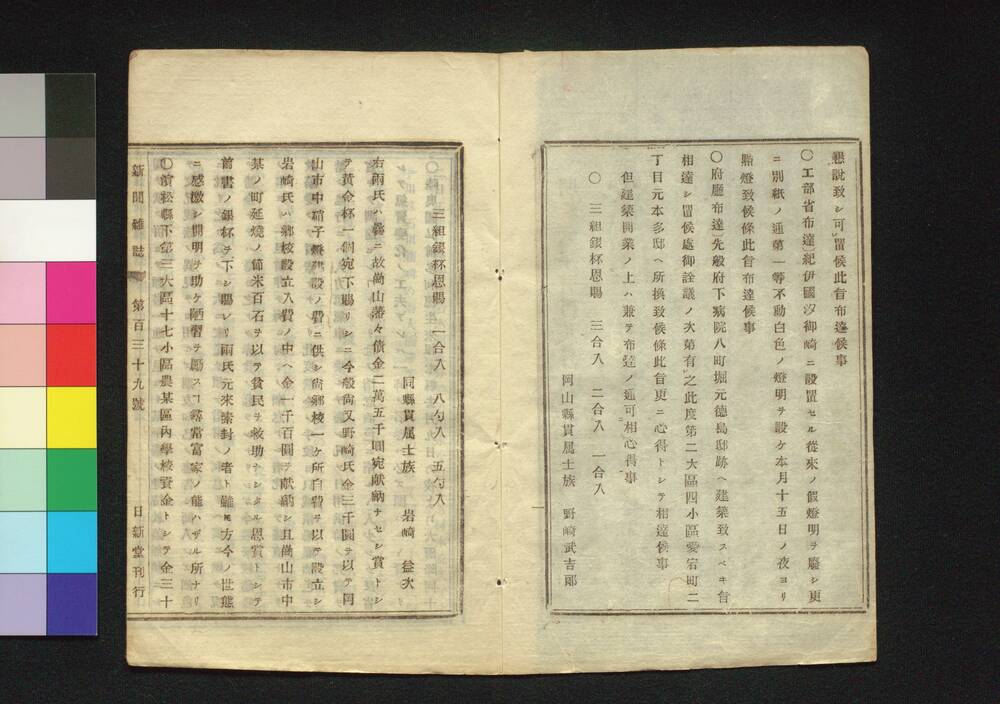 懇說致シ可置候此旨布達候事
〇工部省布達]紀伊國汐御崎ニ設置セル從來ノ假燈明ヲ廢シ更
ニ別紙ノ通第一等不動白色ノ燈明ヲ設ケ本月十五日ノ夜ヨリ
點燈致候條此旨布達候事
〇府廳布達]先般府下病院八町堀元德島邸跡ヘ建築致スベキ旨
相達シ置候處御詮議ノ次第有之此度第二大區四小區愛宕町二
丁目元本多邸ヘ所換致候條此旨更ニ心得トシテ相達候事
但建築開業ノ上ハ兼テ布達ノ通可相心得事
〇 三組銀杯恩賜 三合入 二合入 一合入
岡山縣貫屬士族 野﨑武吉郞
三組銀杯恩賜 一合入 八勺入 五勺入
同縣貫屬士族 岩﨑 益次
右兩氏ハ曩ニ故岡山藩々債金二萬五千圓宛献納ナセシ賞トシ
テ黃金杯一個宛下賜リシニ今般尙又野﨑氏金三千圓ヲ以テ岡
山市中硝子燈建設ノ費ニ供シ尙鄕校一ケ所自費ヲ以テ設立シ
岩﨑氏ハ鄕校設立入費ノ中ヘ金一千百圓ヲ献納シ且岡山市中
某ノ町延燒ノ節米百石ヲ以テ貧民ヲ救助ナシタル恩賞トシテ
前書ノ銀杯ヲ下シ賜レリ兩氏元來素封ノ者ト雖𪜈方今ノ世態
ニ感激シ開明ヲ助ケ陋習ヲ勵スヿ尋常富家ノ能ハザル所ナリ
〇濱松縣下第三大區十七小區農某區內學校資金トシテ金三十
新聞雜誌 第百三十九號 日新堂刊行